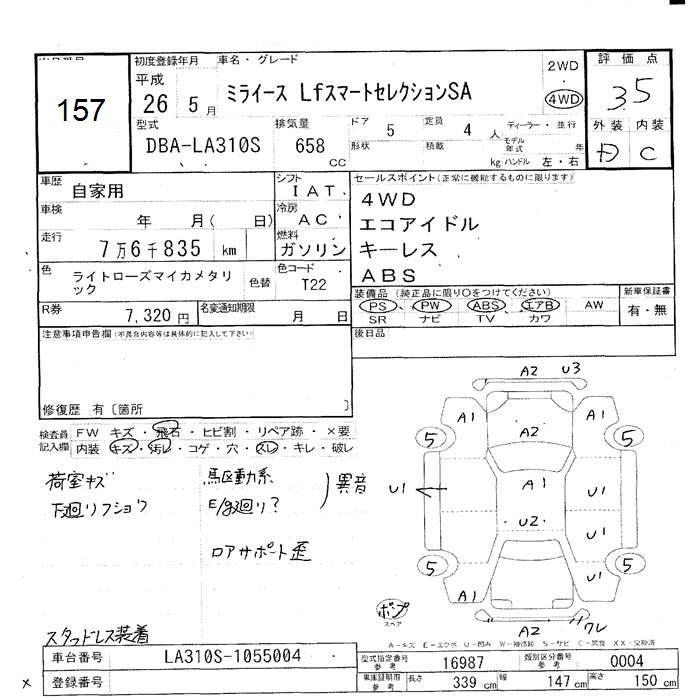 157
初度登録年月
車名・グレード
平成
26 5月
ミライース LfスマートセレクションSA
2WD
4WD
評価点
3 5
外装 内装
D C
型式
DBA-LA310S
排気量
658
CC
ドア
5
形状
定員
4
人
積載
kg
ディーラー・並行
モデル年式
年
ハンドル 左・右
車歴
自家用
シフト
IAT
車検
年 月( 日)
冷房
AC
走行
7万6千835 km
燃料
ガソリン
色
ライトローズマイカメタリック
色替
色コード
T22
R券
7,320円
名変通知期限
月 日
セールスポイント(正常に機能するものに限ります)
4WD
エコアイドル
キーレス
ABS
装備品(純正品に限り○をつけてください)
PS PW ABS エアB AW
SR ナビ TV カワ
新車保証書
有・無
後日品
注意事項申告欄(不具合内容等は具体的に記入して下さい)
修復歴 有〔箇所 〕
検査員記入欄
FW キズ・飛石・ヒビ割・リペア跡・×要
内装 キズ・汚レ・コゲ・穴・スレ・キレ・破レ
荷室キズ
下廻りフショク
駆動系
E/g廻り?
異音
ロアサポート歪
スタッドレス装着
A2 U3
A1 A1
5 A2 5
A1
U1 U1
U2
U1
5 5
U1
A1
ボブ
スペア
A2 ワレ
A-キズ E-エクボ U-凹み W-補修跡 S-サビ C-腐蝕 XX-交換済
車台番号 LA310S-1055004
登録番号
型式指定番号 参考 16987
類別区分番号 参考 0004
車庫証明用 参考 長さ 339 cm 幅 147 cm 高さ 150 cm
×